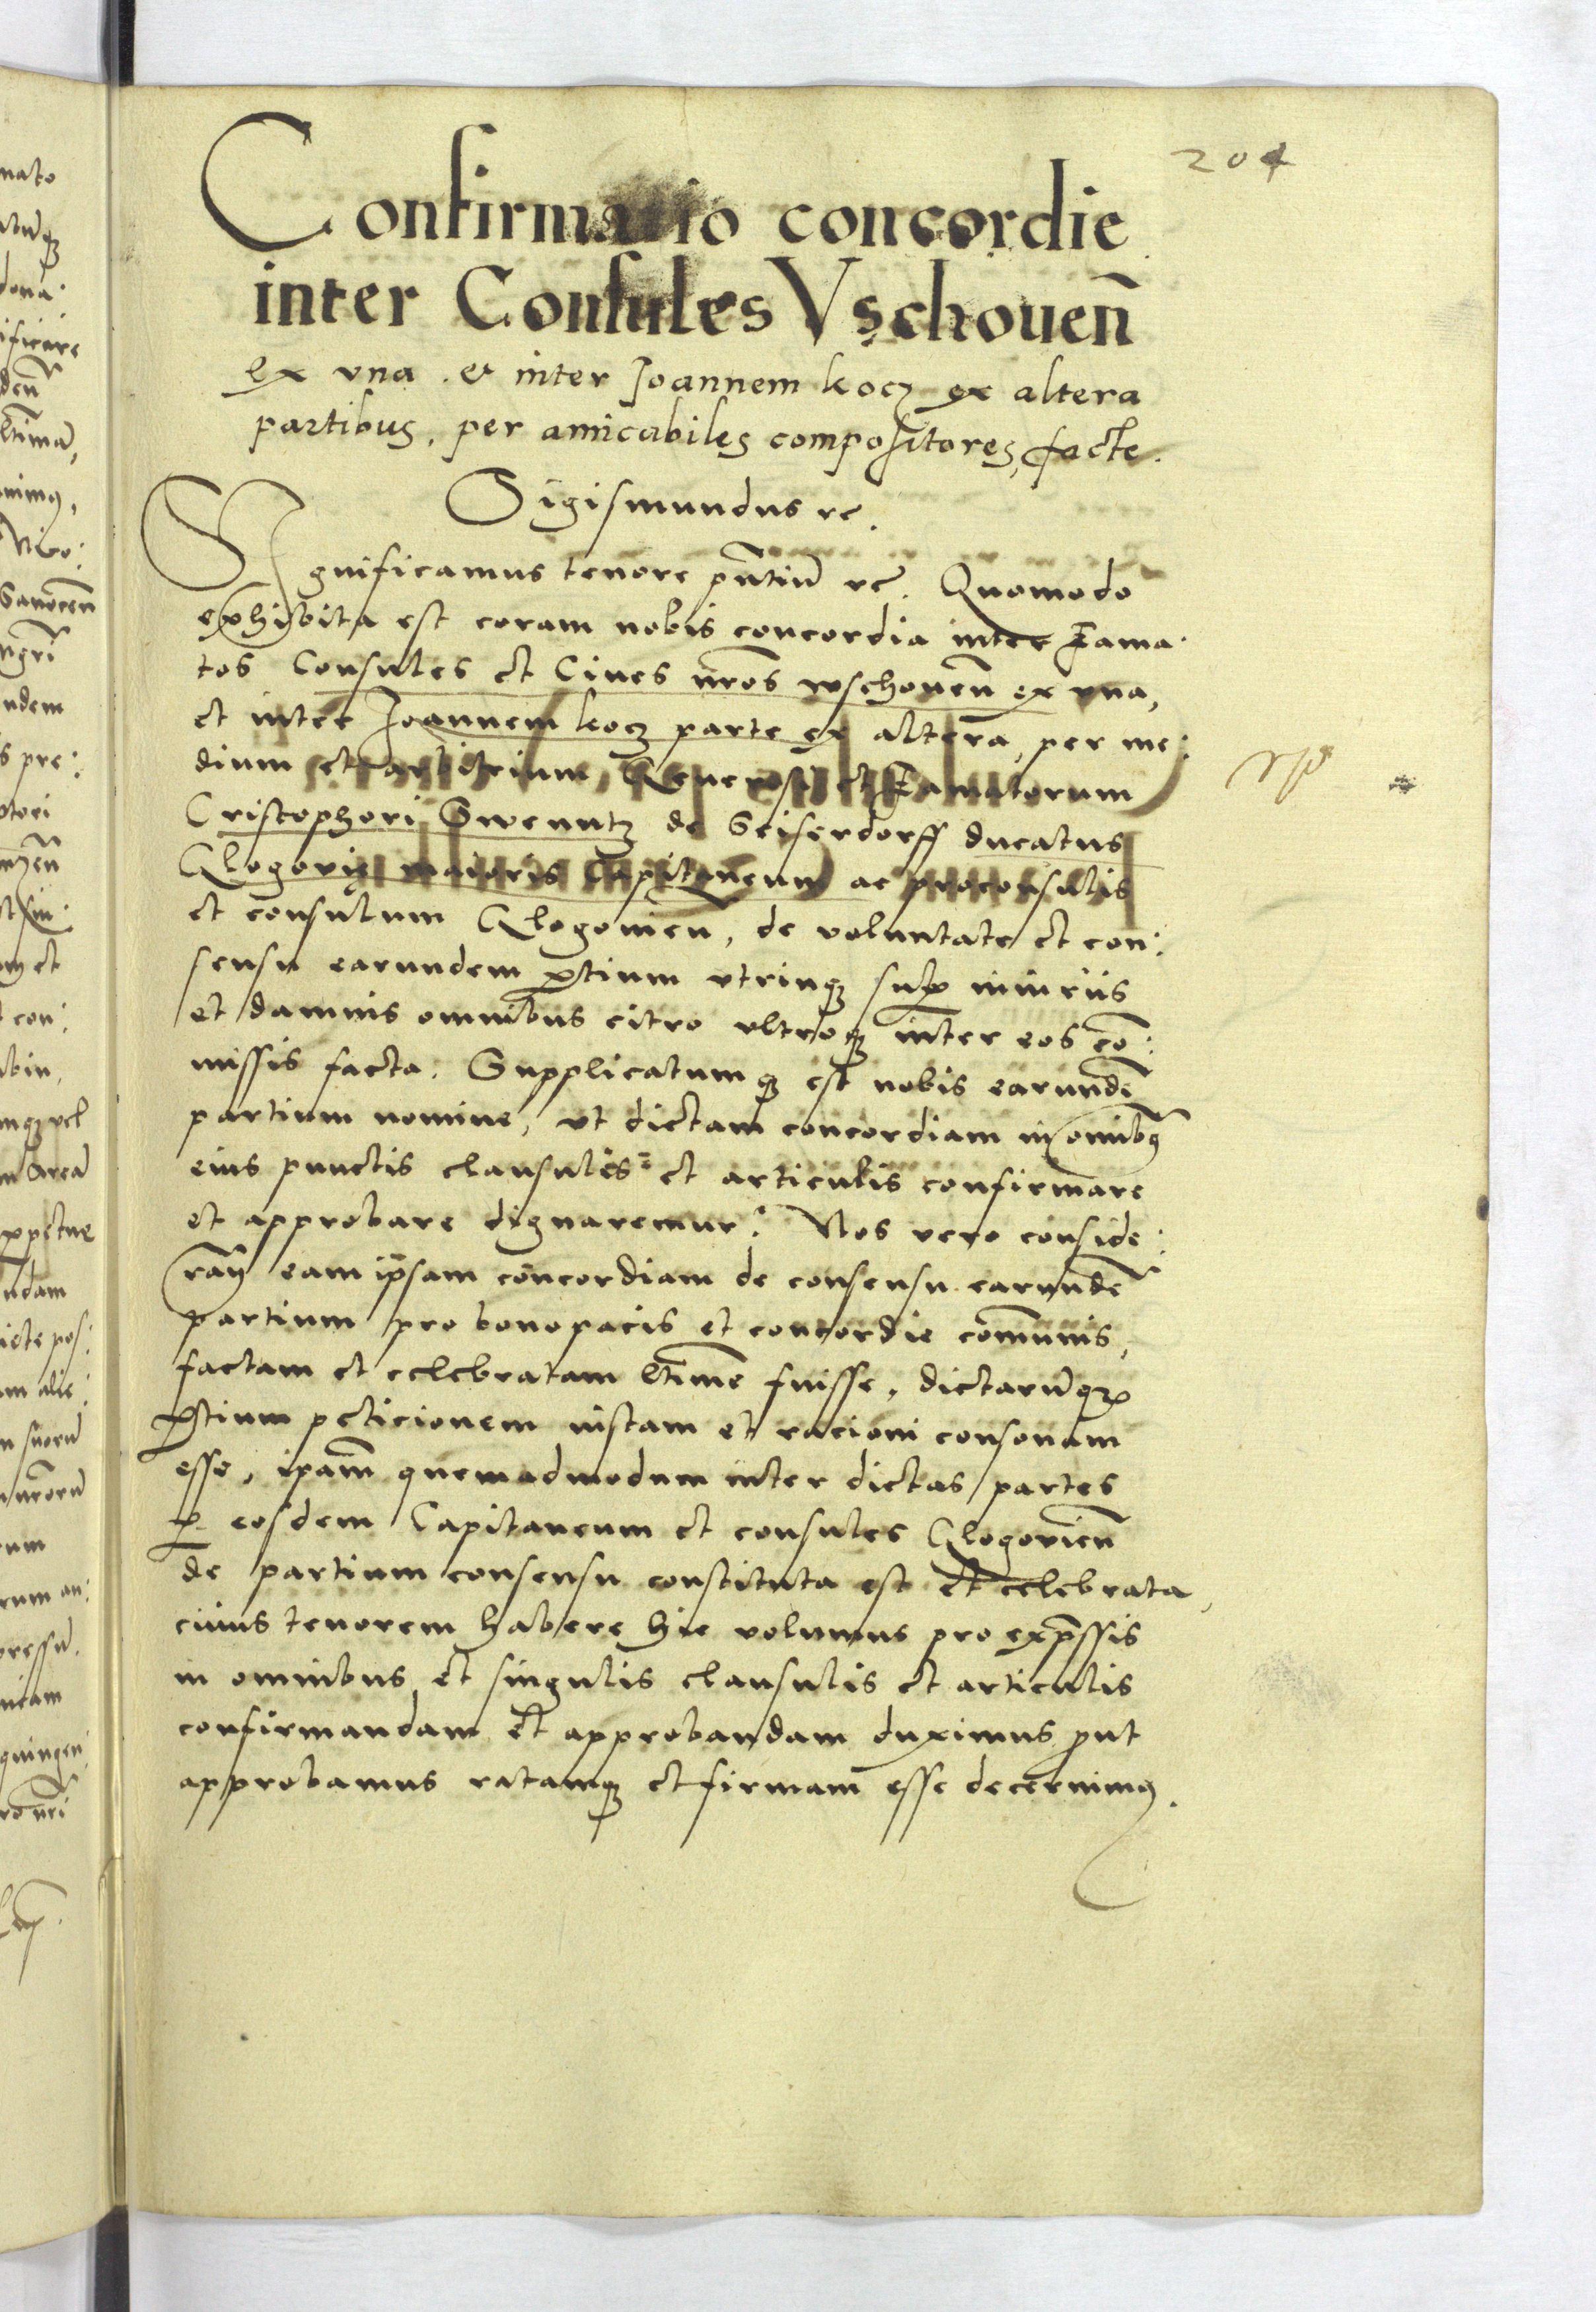 204
Confirmatio concordie
inter Consules Vschouen̄
ex vna . et inter Joannem kocz ex altera
partibus, per amicabiles compositores, facte.
Sigismundus rc.
Significamus tenore pn̄tiū rc̄. Quomodo
exhibita est coram nobis concordia inter Fama:
tos Consules et Ciues nr̄os wschouen̄ ex vna,
et inter Joannem kocz parte ex altera, per me:
dium et arbitrium, Generosi et Famatorum
Cristophori Swenntz de Seiserdorff ducatus
Glogovię maioris Capitaneum ac proconsulis
et consulum Glogouien, de voluntate et con:
sensu earundem ꝑtium vtrinqꝫ sup iniuriis
et damnis omnibus citro vltroqꝫ inter eos cō:
missis facta. Supplicatumqꝫ est nobis earundē
partium nomine, vt dictam concordiam in omībꝫ
eius punctis clausulis et articulis confirmare
et approbare dignaremur. Nos vero conside:
rañ eam ip̄sam concordiam de consensu earundē
partium pro bono pacis et concordie com̄unis,
factam et celebratam l̄timē fuisse, dictarūqꝫ
ꝑtium peticionem iustam et racioni consonam
esse, ip̄am quemadmodum inter dictas partes
ꝑ eosdem Capitaneum et consules Glogovien̄
de partium consensu constituta est et celebrata,
cuius tenorem habere hic volumus pro exp̄ssis
in omnibus et singulis clausulis et articulis
confirmandam et approbandam duximus ꝓut
approbamus ratamqꝫ et firmam esse decernimꝰ.